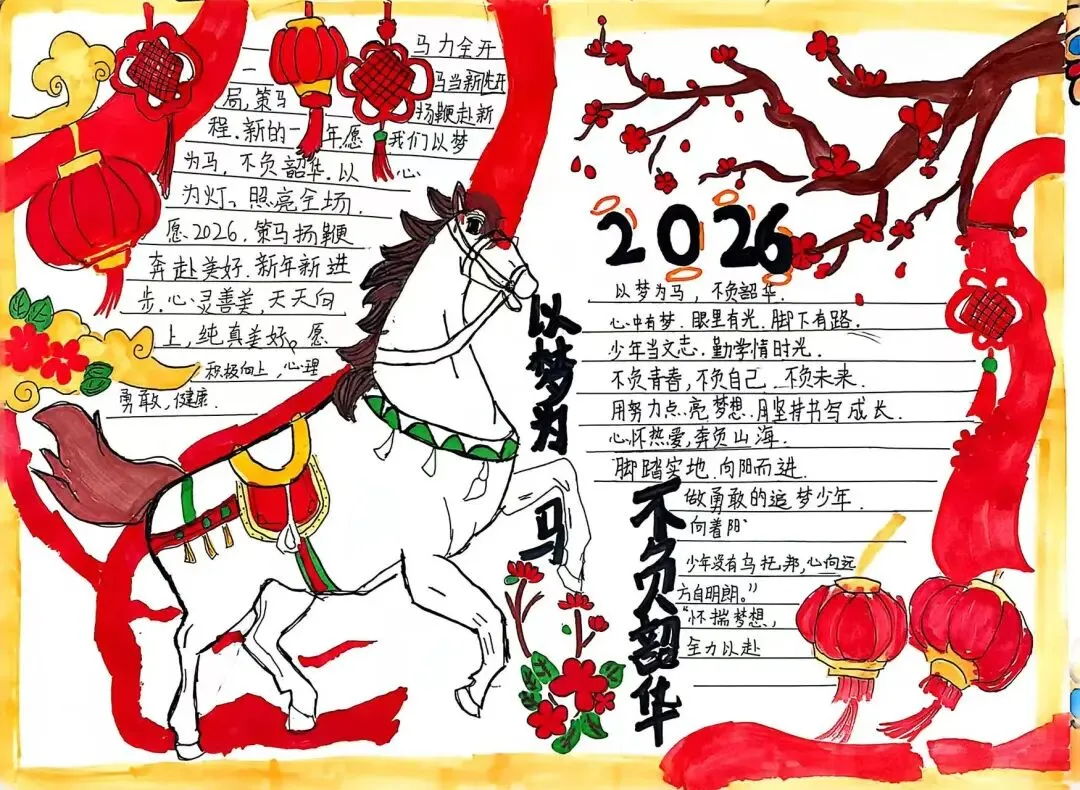 一 马力全开
一 马当新先开
局,策马 扬鞭赴新
程.新的一年愿我们以梦
为马,不负韶华.以心
为灯、照亮全场.
愿2026.策马扬鞭
奔赴美好.新年新进
步.心灵善美,天天向
上,纯真美好。愿
积极向上,心理
勇敢,健康.
以梦为马
不负韶华
2026
以梦为马,不负韶华.
心中有梦.眼里有光.脚下有路.
少年当文志.勤学情时光.
不负青春,不负自己.不负未来.
用努力点亮梦想.用坚持书写成长.
心怀热爱,奔负山海.
脚踏实地.向阳而进.
做勇敢的追梦少年.
向着阳
少年没有乌托邦,心向远
方自明朗。”
“怀揣梦想,
全力以赴